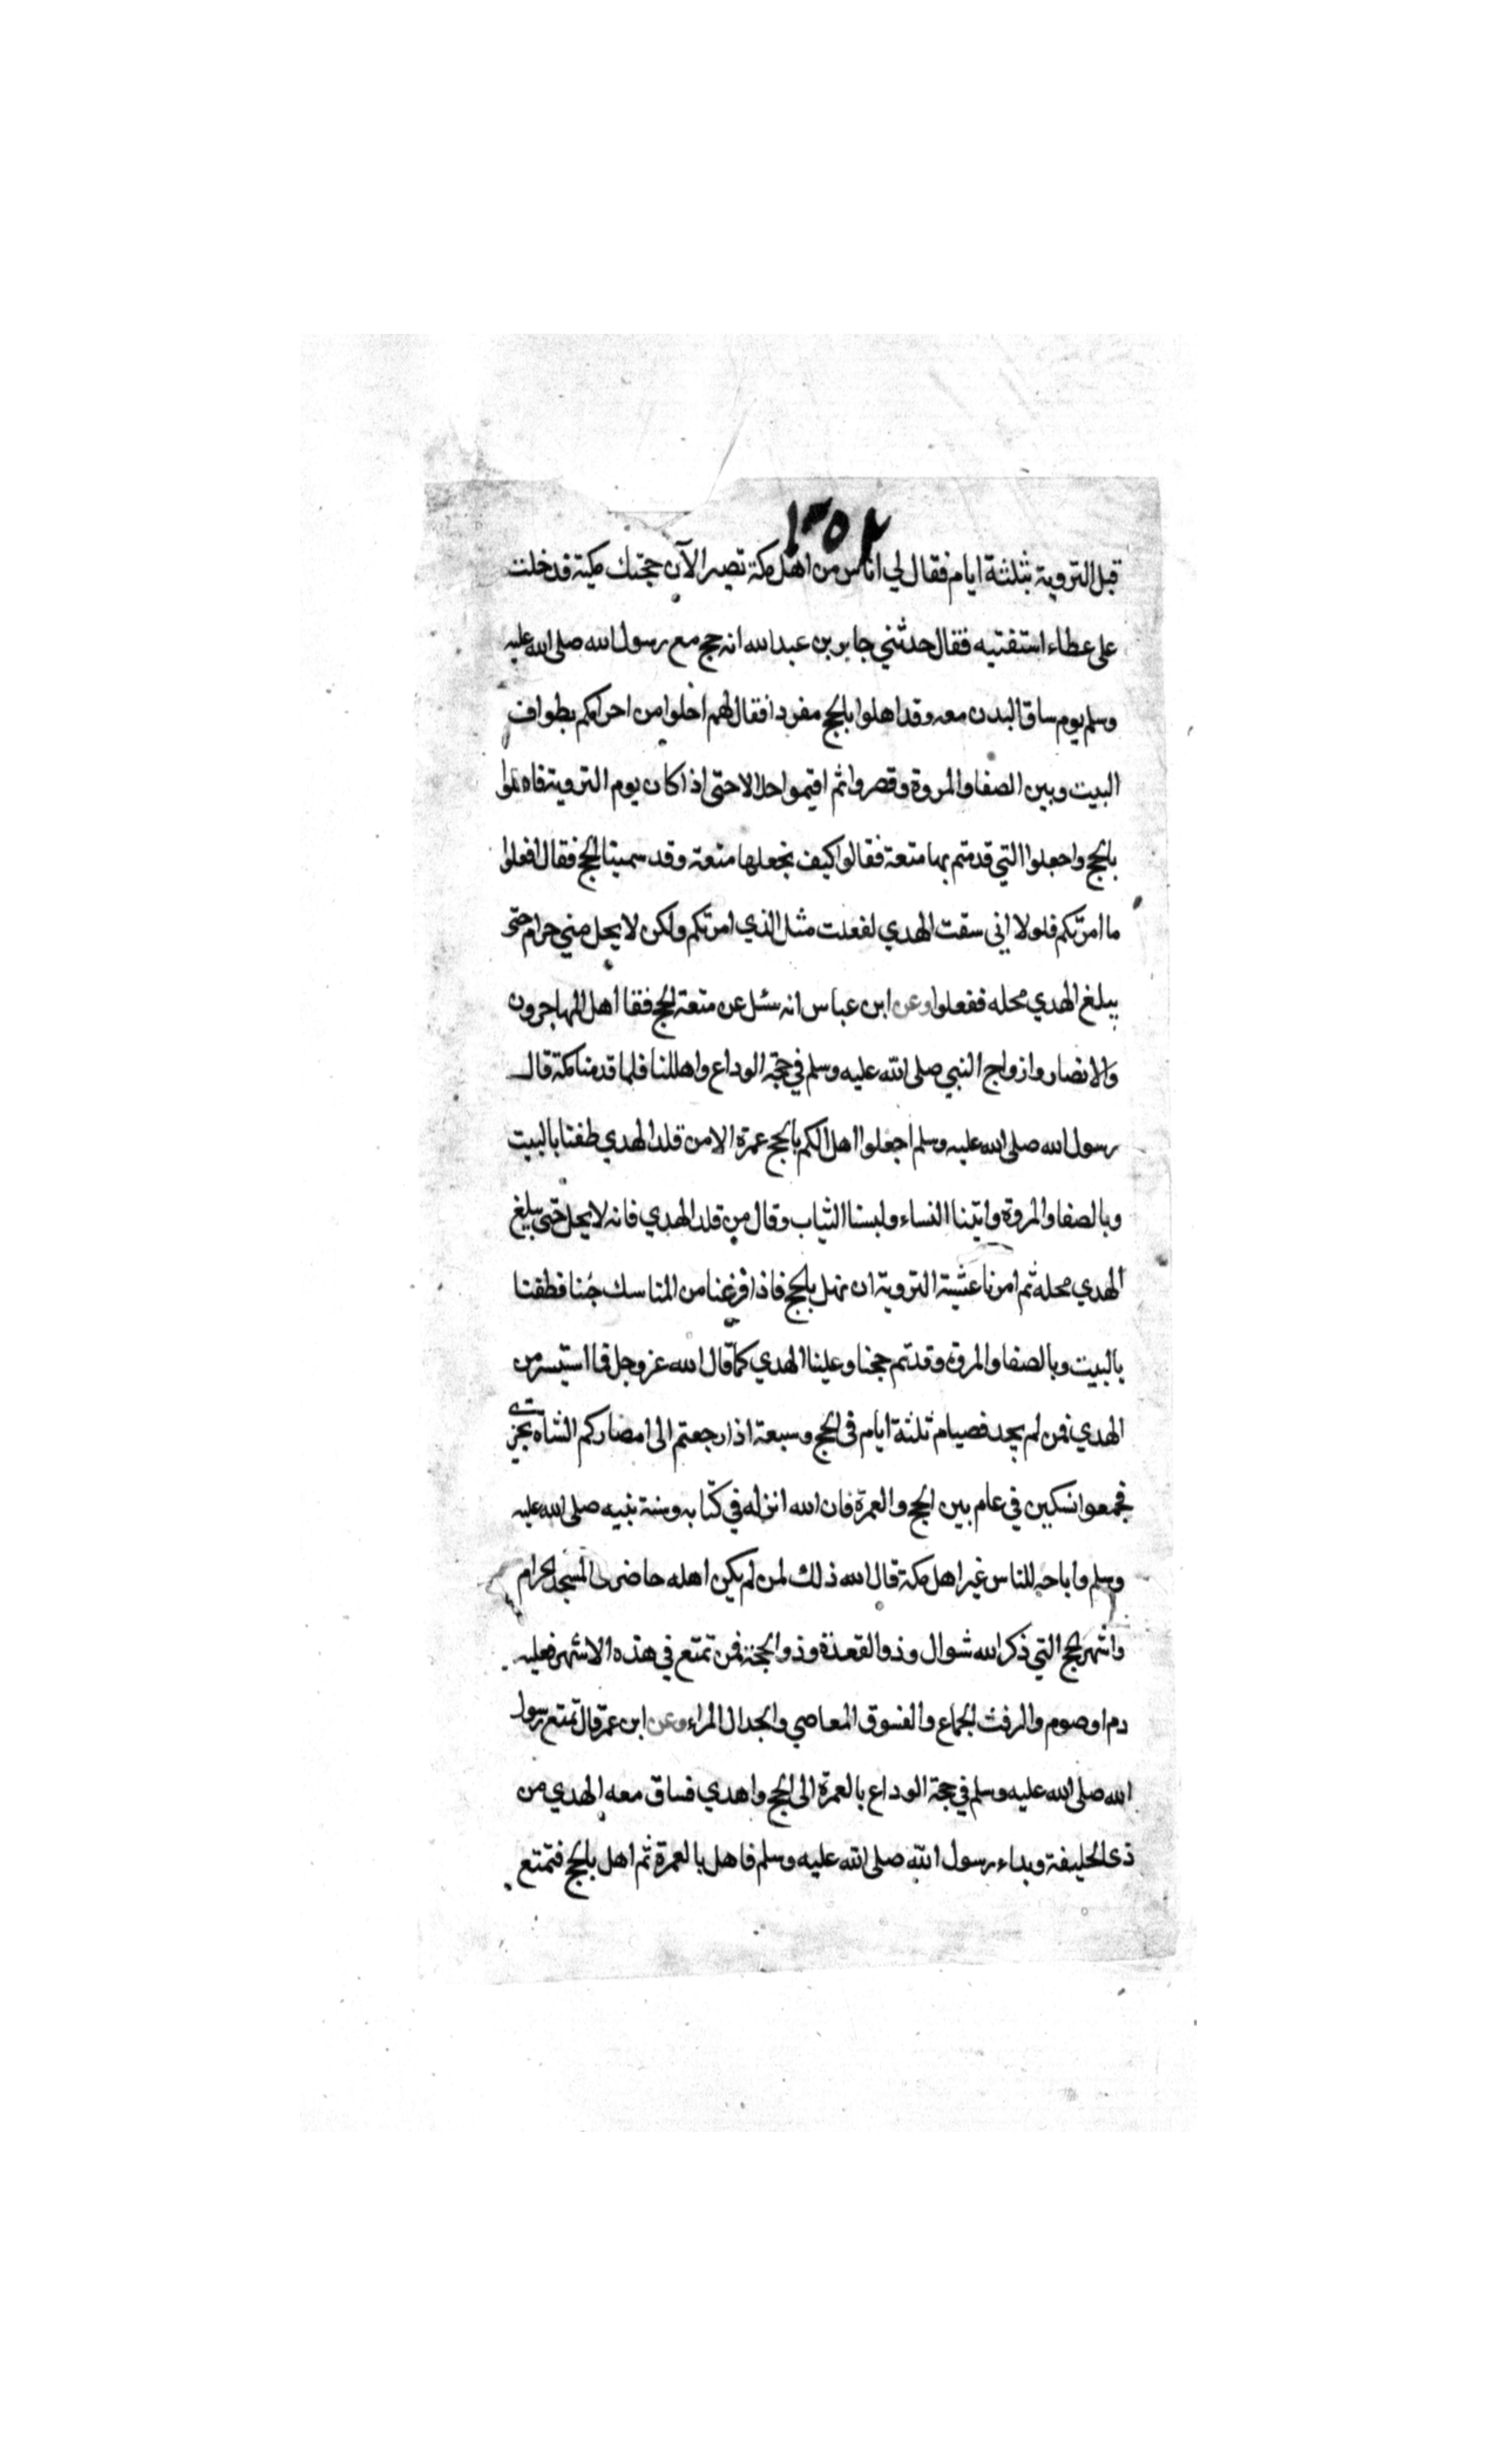 قبل التروية بثلثة ايام فقال لي اناس من اهل مكة تصير الآن حجتك مكية فدخلت
على عطاء استفتيه فقال حدثني جابر بن عبد الله انه حج مع رسول الله صلى الله عليه
وسلم يوم ساق البدن معه وقد اهلوا بالحج مفردا فقال لهم احلوا من احرامكم بطواف
البيت وبين الصفا والمروة وقصروا ثم اقيموا حلالا حتى اذا كان يوم التروية فاهلوا
بالحج واجعلوا التي قدمتم بها متعة فقالوا كيف نجعلها متعة وقد سمينا الحج فقال افعلوا
ما امرتكم فلولا اني سقت الهدي لفعلت مثل الذي امرتكم ولكن لا يحل مني حرام حتى
يبلغ الهدي محله ففعلوا وعن ابن عباس انه سئل عن متعة الحج فقا اهل المهاجرون
والانصار وازواج النبي صلى الله عليه وسلم في حجة الوداع واهللنا فلما قدمنا مكة قال
رسول الله صلى الله عليه وسلم اجعلوا اهلالكم بالحج عمرة الا من قلد الهدي طفنا بالبيت
وبالصفا والمروة واتينا النساء ولبسنا الثياب وقال من قلد الهدي فانه لا يحل حتى يبلغ
الهدي محله ثم امرنا عشية التروية ان نهل بالحج فاذا فرغنا من المناسك جئنا فطفنا
بالبيت وبالصفا والمروة وقد تم حجنا وعلينا الهدي كما قال الله عز وجل فما استيسر من
الهدي فمن لم يجد فصيام ثلثة ايام في الحج وسبعة اذا رجعتم الى امصاركم الشاة تجزى
فجمعوا نسكين في عام بين الحج والعمرة فان الله انزله في كتابه وسنة نبيه صلى الله عليه
وسلم واباحه للناس غير اهل مكة قال الله ذلك لمن لم يكن اهله حاضرى المسجد الحرام
واشهر الحج التي ذكر الله شوال وذو القعدة وذو الحجة فمن تمتع في هذه الاشهر فعليه
دم او صوم والرفث الجماع والفسوق المعاصي والجدال المراء وعن ابن عمر قال تمتع رسول
الله صلى الله عليه وسلم في حجة الوداع بالعمرة الى الحج واهدي فساق معه الهدي من
ذى الحليفة وبداء رسول الله صلى الله عليه وسلم فاهل بالعمرة ثم اهل بالحج فتمتع